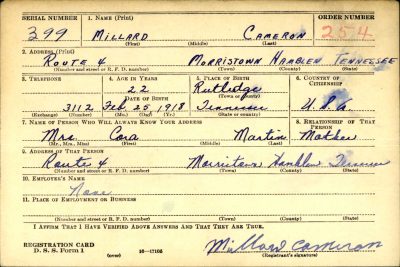 SERIAL NUMBER 1. NAME (Print) ORDER NUMBER
399 MILLARD CAMERON 254
(First) (Middle) (Last)
2. ADDRESS (Print)
ROUTE 4 MORRISTOWN HAMBLEN TENNESSEE
(Number and street or R. F. D. number) (Town) (County) (State)
3. TELEPHONE 4. AGE IN YEARS 5. PLACE OF BIRTH 6. COUNTRY OF CITIZENSHIP
22 Rutledge
DATE OF BIRTH (Town or county)
3112 Feb 25 1918 Tennessee U.S.A
(Exchange) (Number) (Mo.) (Day) (Yr.) (State or country)
7. NAME OF PERSON WHO WILL ALWAYS KNOW YOUR ADDRESS 8. RELATIONSHIP OF THAT PERSON
Mrs. Cora Martin Mother
(Mr., Mrs., Miss) (First) (Middle) (Last)
9. ADDRESS OF THAT PERSON
Route 4 Morristown Hamblen Tennessee
(Number and street or R. F. D. number) (Town) (County) (State)
10. EMPLOYER'S NAME
None
11. PLACE OF EMPLOYMENT OR BUSINESS
(Number and street or R. F. D. number) (Town) (County) (State)
I AFFIRM THAT I HAVE VERIFIED ABOVE ANSWERS AND THAT THEY ARE TRUE.
REGISTRATION CARD
D. S. S. Form 1 (over) 16-17105 Millard Cameron
(Registrant's signature)